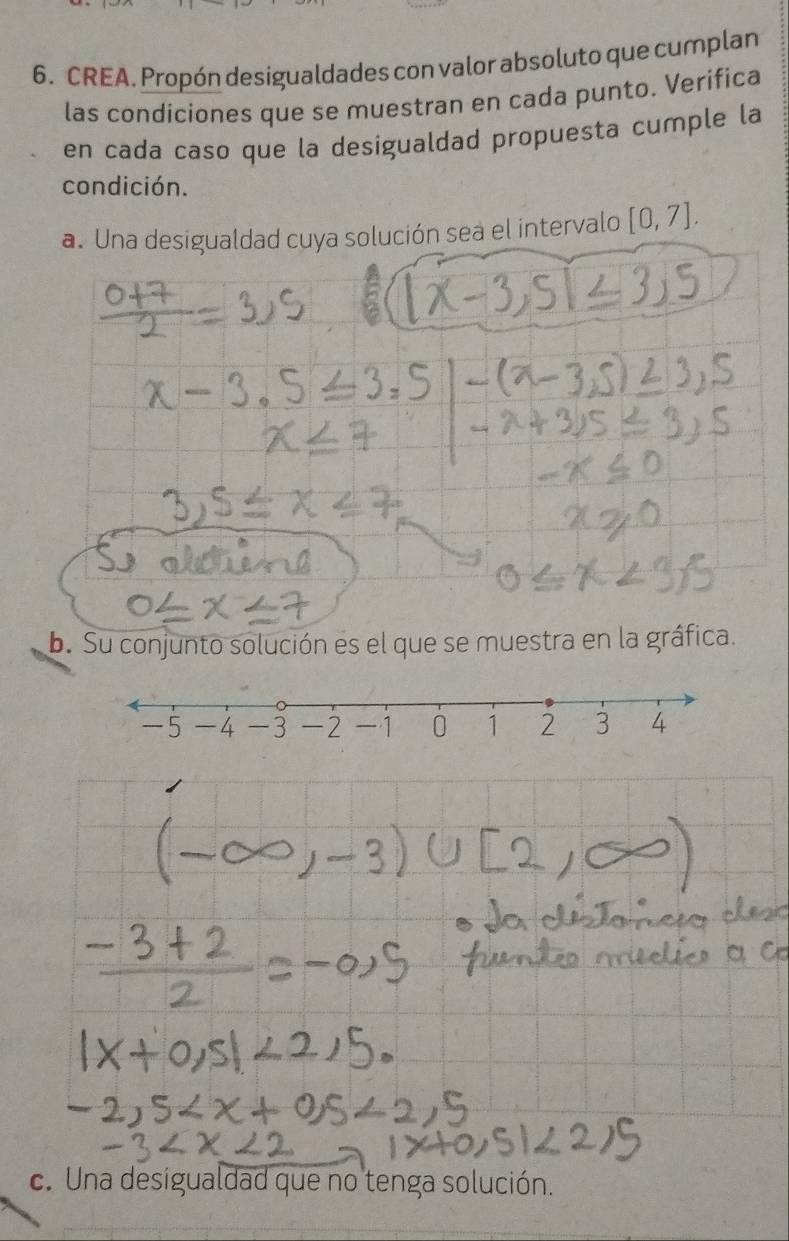 6. CREA. Propón desigualdades con valor absoluto que cumplan
las condiciones que se muestran en cada punto. Verifica
en cada caso que la desigualdad propuesta cumple la
condición.
a. Una desigualdad cuya solución sea el intervalo [0, 7].
0+7/2 = 3,5 |x-3,5| ≤ 3,5
x - 3.5 ≤ 3.5 | -(x-3,5) ≤ 3,5
x ≤ 7 | -x+3,5 ≤ 3,5
-x ≤ 0
3,5 ≤ x ≤ 7 x ≥ 0
0 ≤ x < 3,5
0 ≤ x ≤ 7
b. Su conjunto solución es el que se muestra en la gráfica.
-5 -4 -3 -2 -1 0 1 2 3 4
(-∞, -3) ∪ [2, ∞)
-3+2/2 = -0,5
|x+0,5| < 2,5.
-2,5 < x + 0,5 < 2,5
-3 < x < 2 → |x+0,5| < 2,5
c. Una desigualdad que no tenga solución.